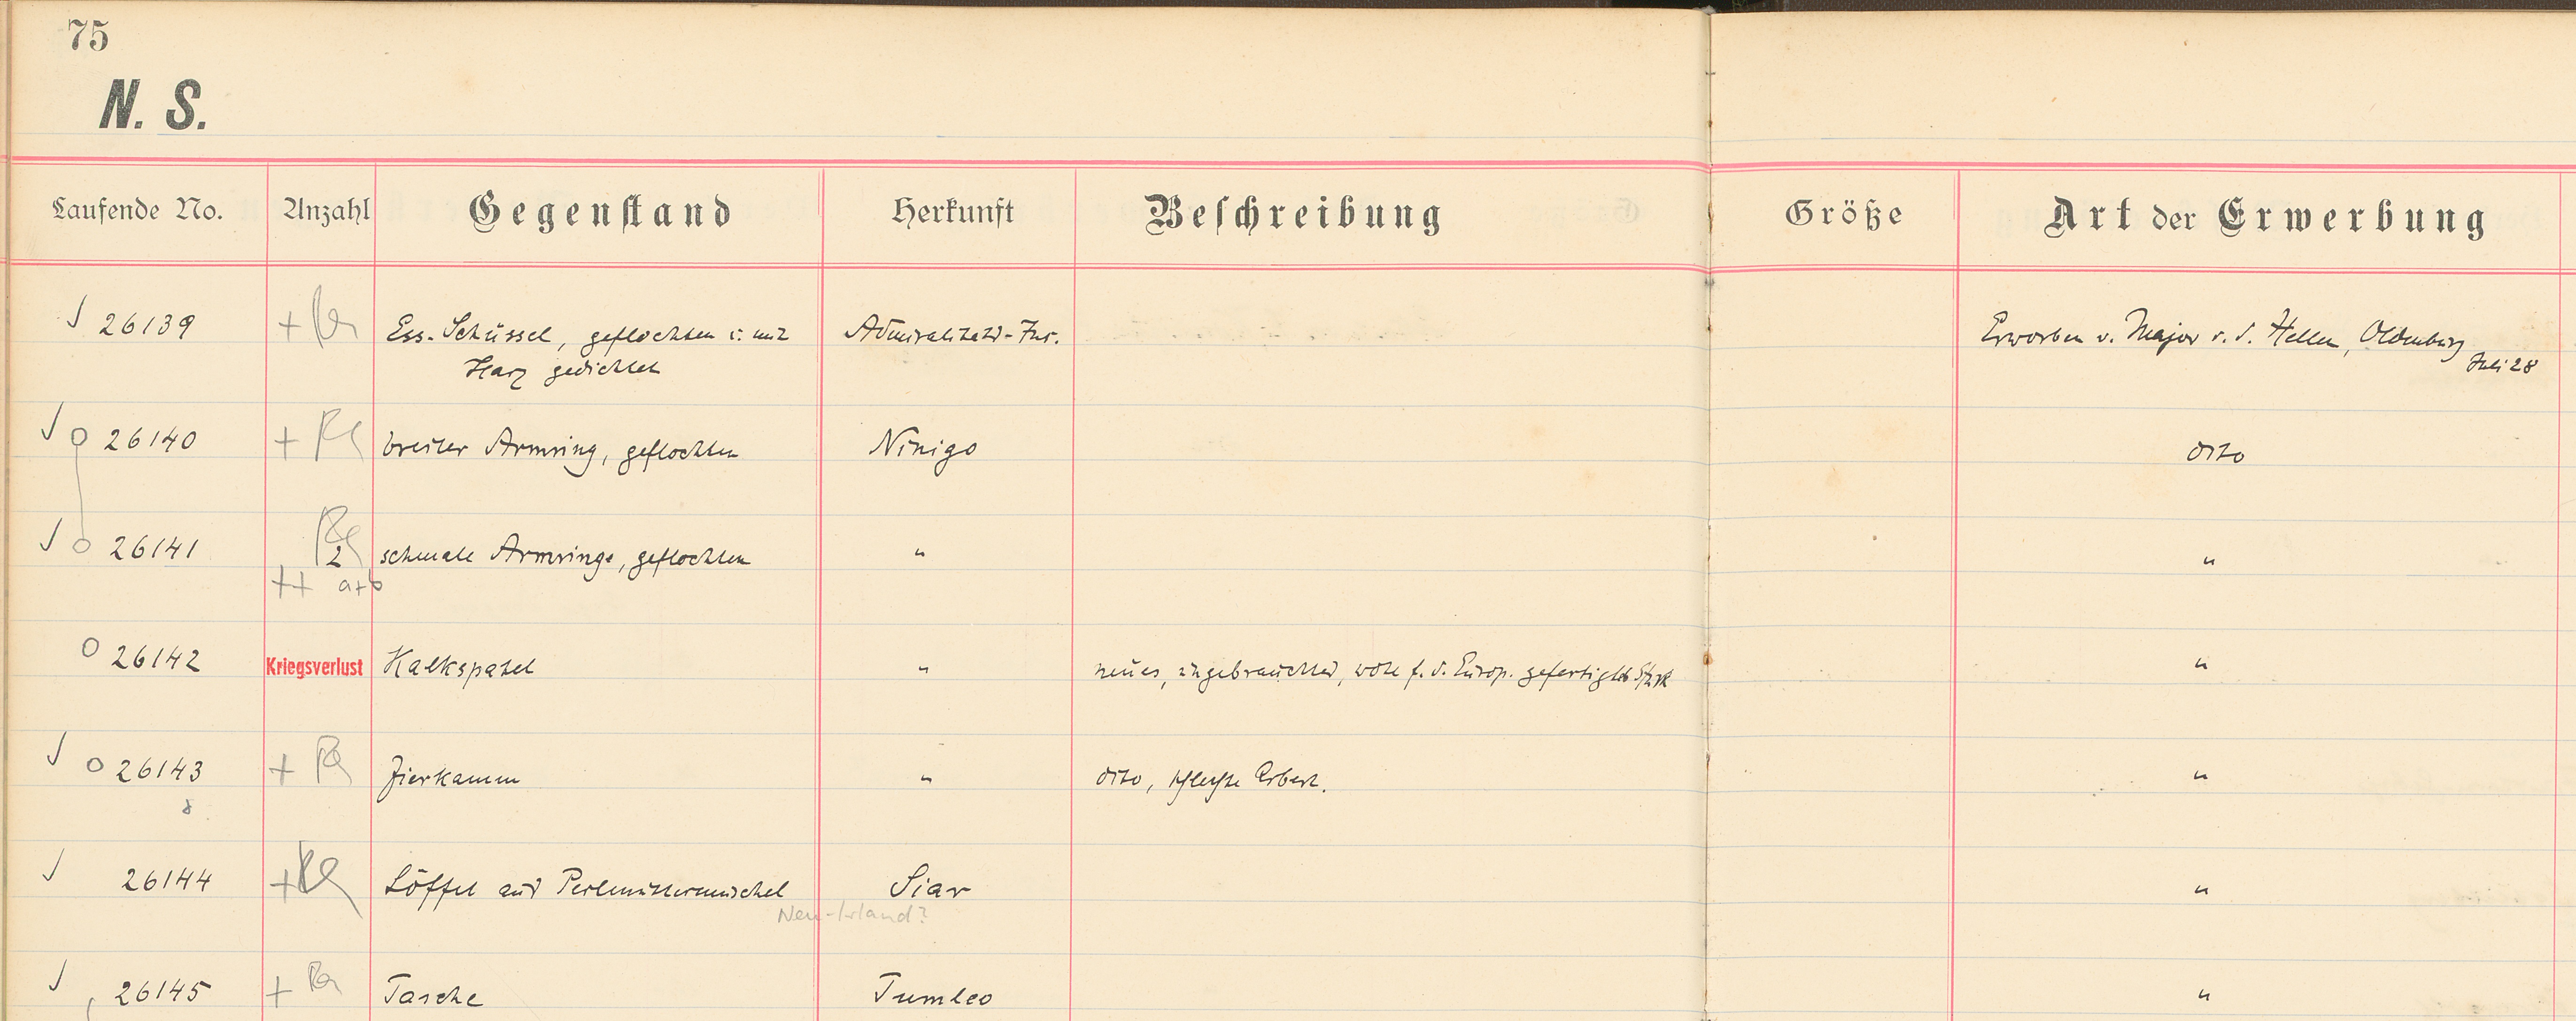 75
N. S.
Laufende No. Anzahl Gegenstand Herkunft Beschreibung Größe Art der Erwerbung
26139 + Ess-Schüssel, geflochten u. mit Admiralitäts-Ins. Erworben v. Major v. d. Hellen, Oldenburg
Harz gedichtet Juli 28
26140 + breiter Armring, geflochten Ninigo dito
26141 2 schmale Armringe, geflochten " "
++ a+b
26142 Kriegsverlust Kalkspatel " neues, ungebrauchtes, wohl f. d. Europ. gefertigtes Stück "
26143 + Zierkamm " dito, schlechte Arbeit. "
26144 + Löffel aus Perlmuttermuschel Siar "
Neu-Irland?
26145 + Tasche Tumleo "